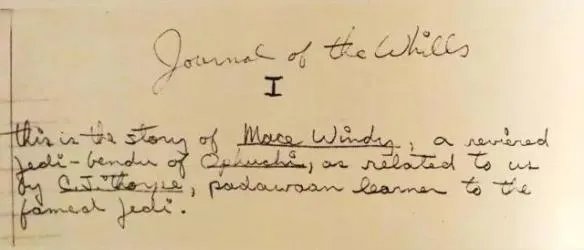 Journal of the Whills
I
this is the story of Mace Windy, a revered
jedi-bendu of Ophuchi, as related to us
by C.J. Thorpe, padawaan learner to the
famed jedi.